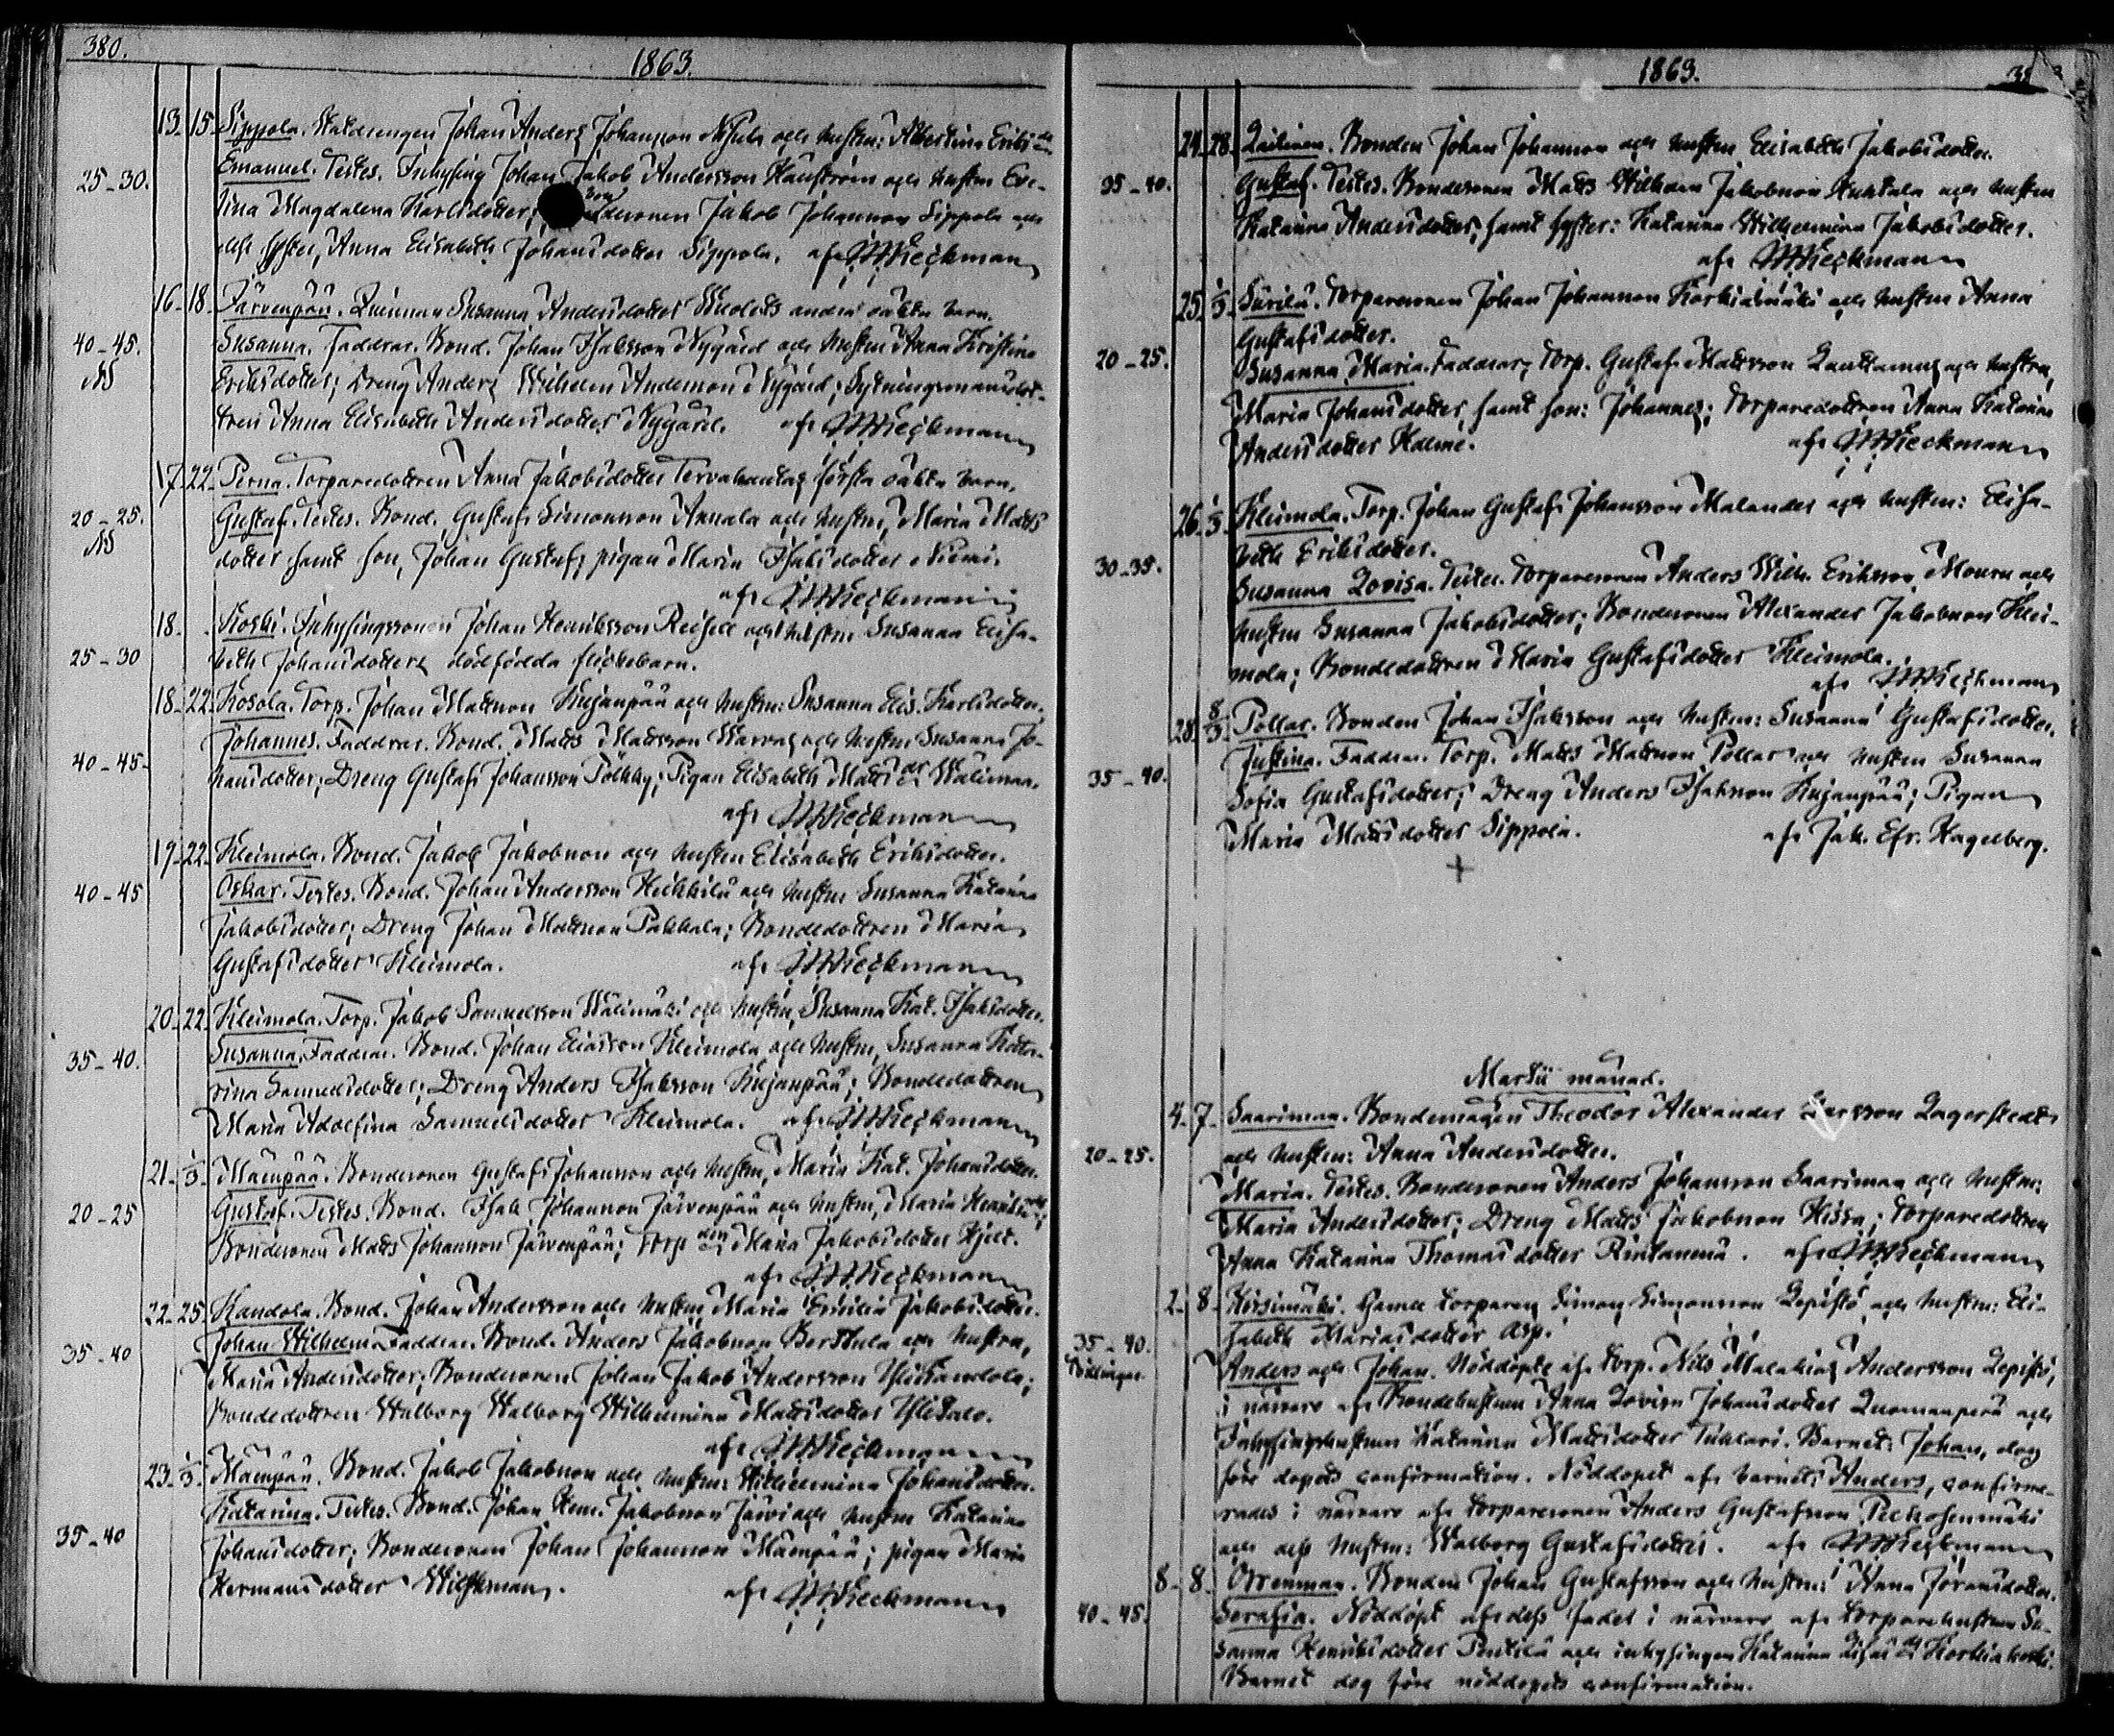 380.
1863.
13. 15. Sippola. Statdrengen Johan Anders Johansson och hustrun: Albertina Eriksdr
Emanuel. Testes. Inhysing Johan Jakob Andersson och hustrun Eve-
25-30.
lina Magdalena Karlsdotter; Bondesonen Jakob Johansson Sippola och
dess syster, Anna Elisabeth Johansdotter Sippola. af IMKeckman
16-18. Järvenpää. Qvinnan Susanna Andersdotter andra oäkta barn.
40-45.
Susanna. Faddrar. Bond. Johan Isaksson Nygård och hustrun Anna Kristina
Eriksdotter; Dreng Anders Wilhelm Andersson Nygård; Sytningsmansdot-
tren Anna Elisabeth Andersdotter Nygård. af IMKeckman
17. 22. Perna. Torparedottren Anna Jakobsdotter första oäkta barn.
20-25.
Gustaf. Testes. Bond. Gustaf Simonsson Annala och hustrun, Maria Matts
dotter samt son, Johan Gustaf; pigan Maria Isaksdotter Niemi.
af IMKeckman
18. Koski. Inhysingssonen Johan Henriksson och hustrun Susanna Elisa-
25-30
beth Johansdotters dödfödda flickebarn.
18-22. Kosola. Torp. Johan Mattsson Kujanpää och hustrun: Susanna Elis. Karlsdotter.
Johannes. Faddrar. Bond. Matts Mattsson och hustrun Susanna Jo-
40-45-
hansdotter; Dreng Gustaf Johansson Pölkky; Pigan Elisabeth Matts dr Wälimaa.
af IMKeckman
19-22. Kleimola. Bond. Jakob Jakobsson och hustrun Elisabeth Eriksdotter.
40-45
Oskar. Testes. Bond. Johan Andersson Heikkilä och hustrun Susanna Katarina
Jakobsdotter; Dreng Johan Mattsson Pakkala; Bondedottren Maria
Gustafsdotter Kleimola. af IMKeckman
20-22. Kleimola. Torp. Jakob Samuelsson Wälimäki och hustrun, Susanna Kat. Isaksdotter.
35-40.
Susanna. Faddrar. Bond. Johan Eliasson Kleimola och hustrun, Susanna Kata-
rina Samuelsdotter; Dreng Anders Isaksson Kujanpää; Bondedottren
Maria Adolfina Samuelsdotter Kleimola. af IMKeckman
21. 1/3 Mäenpää. Bondesonen Gustaf Johansson och hustrun, Maria Kat. Johansdotter.
20-25
Gustaf. Testes. Bond. Isak Johansson Järvenpää och hustrun, Maria Henriksdr;
Bondesonen Matts Johansson Järvenpää; Torp dn Maria Jakobsdotter Hjelt.
af IMKeckman
22-25. Kandola. Bond. Johan Andersson och hustrun Maria Emilia Jakobsdotter.
35-40
Johan Wilhelm. Faddrar. Bond. Anders Jakobsson Berttula och hustrun,
Maria Andersdotter; Bondesonen Johan Jakob Andersson Ylikandola;
Bondedottren Walborg Walborg Wilhelmina Mattsdotter Ylitalo.
af IMKeckman
23. 1/3 Mäenpää. Bond. Jakob Jakobsson och hustrun: Wilhelmina Johansdotter.
Katarina. Testes. Bond. Johan Henr. Jakobsson Järvi och hustrun Katarina
35-40
Johansdotter; Bondesonen Johan Johansson Mäenpää; pigan Maria
Hermansdotter. af IMKeckman
1863.
24. 28. Bonden Johan Johansson och hustrun Elisabeth Jakobsdotter.
35-40.
Gustaf. Testes. Bondesonen Matts Wilhelm Jakobsson och hustrun
Katarina Andersdotter, samt syster: Katarina Wilhelmina Jakobsdotter.
af IMKeckman
25. 1/3 Torparesonen Johan Johansson Korkiamäki och hustrun Anna
Gustafsdotter.
20-25.
Susanna Maria. Faddrar; Torp. Gustaf Mattsson och hustrun,
Maria Johansdotter, samt son: Johannes; Torparedottren Anna Katarina
Andersdotter. af IMKeckman
26. 1/3 Kleimola. Torp. Johan Gustaf Johansson Malander och hustrun: Elisa-
beth Eriksdotter.
30-35.
Susanna Lovisa. Testes. Torparesonen Anders Wilh. Eriksson och
hustrun Susanna Jakobsdotter; Bondesonen Alexander Jakobsson Klei-
mola; Bondedottren Maria Gustafsdotter Kleimola.
af IMKeckman
28. 8/3 Pollar. Bonden Johan Isaksson och hustrun: Susanna Gustafsdotter.
Justina. Faddrar. Torp. Matts Mattsson Pollar och hustrun Susanna
35-40.
Sofia Gustafsdotter; Dreng Anders Isaksson Kujanpää; Pigan
Maria Mattsdotter Sippola. af Jak. Efr. Hagelberg.
Martii månad.
4. 7. Saarimaa. Bondemågen Theodor Alexander Larsson Lagerstedt
20-25.
och hustrun: Anna Andersdotter.
Maria. Testes. Bondesonen Anders Johansson Saarimaa och hustrun:
Maria Andersdotter; Dreng Matts Jakobsson Kissa; Torparedottren
Anna Katarina Thomasdotter Rintamaa. af IMKeckman
2. 8. Gamle torparen Simon Simonsson Lepistö och hustrun: Eli-
35-40.
Tvillingar.
sabeth Mariasdotter Asp.
Anders och Johan. Nöddöpte af Torp. Nils Malakias Andersson Lepistö,
i närvaro af Bondehustrun Anna Lovisa Johansdotter Luomanperä och
Inhysingshustrun Katarina Mattsdotter. Barnet: Johan, dog
före dopets confirmation. Nöddopet af barnet: Anders, confirme-
rades i närvaro af torparesonen Anders Gustafsson
och dess hustru: Walborg Gustafsdotter. af IMKeckman
8. 8. Orrenmaa. Bonden Johan Gustafsson och hustrun: Anna Göransdotter.
40-45.
Serafia. Nöddöpt af dess fader i närvaro af torparehustrun Su-
sanna Henriksdotter Penttilä och inhysingen Katarina Korkiakoski.
Barnet dog före nöddopets confirmation.